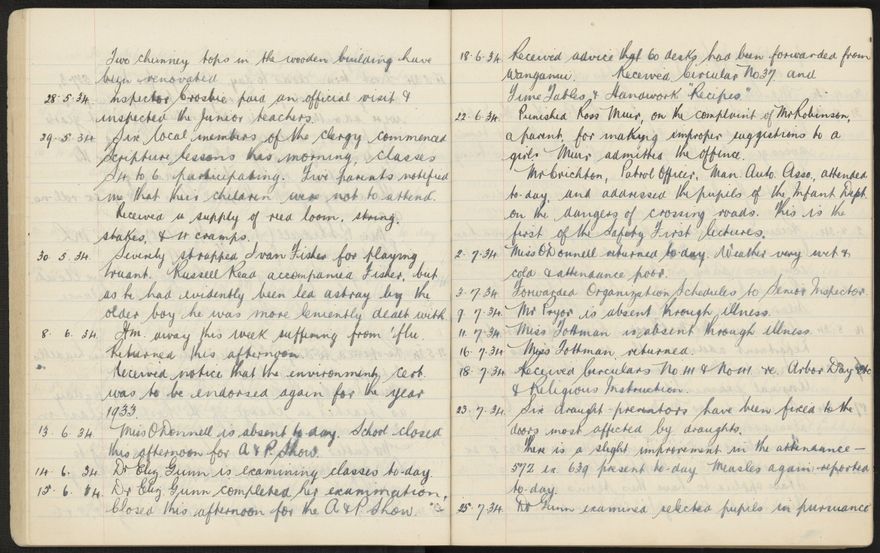 Two chimney tops in the wooden building have
been renovated
28.5.34. Inspector Crosbie paid an official visit &
inspected the junior teachers.
29.5.34 Six local members of the clergy commenced
scripture lessons this morning, classes
S4 to 6 participating. Five parents notified
me that their children were not to attend.
Received a supply of reed loom, string,
stakes, & cramps.
30.5.34. Severely strapped Ivan Fisher for playing
truant. Russell Read accompanied Fisher, but
as he had evidently been led astray by the
older boy he was more leniently dealt with
8.6.34. Hm. away this week suffering from 'flu.
Returned this afternoon
Received notice that the environment cert.
was to be endorsed again for the year
1933
13.6.34. Miss O'Donnell is absent to-day. School closed
this afternoon for A & P. Show.
14.6.34. Dr Eliz Gunn is examining classes to-day
15.6.34. Dr Eliz Gunn completed her examination,
Closed this afternoon for the A & P. Show.
18.6.34. Received advice that 60 desks had been forwarded from
Wanganui. Received Circular No 37 and
Time Tables & Handwork "Recipes"
22.6.34. Punished Ross Muir, on the complaint of Mr Robinson,
a parent, for making improper suggestions to a
girl. Muir admitted the offence.
Mr Crichton, Patrol Officer, Man. Auto. Asso, attended
to-day, and addressed the pupils of the Infant Dept
on the dangers of crossing roads. This is the
first of the Safety First lectures.
2.7.34 Miss O'Donnell returned to-day. Weather very wet &
cold & attendance poor.
3.7.34 Forwarded Organization Schedules to Senior Inspector
9.7.34 Mr Pryor is absent through illness.
11.7.34. Miss Tottman is absent through illness.
16.7.34 Miss Tottman returned.
18.7.34 Received Circulars No & No re. Arbor Day etc
& Religious Instruction.
23.7.34. Six draught preventors have been fixed to the
doors most affected by draughts.
There is a slight improvement in the attendance —
572 ex 639 present to-day. Measles again reported
to-day.
25.7.34. Dr Gunn examined selected pupils in pursuance